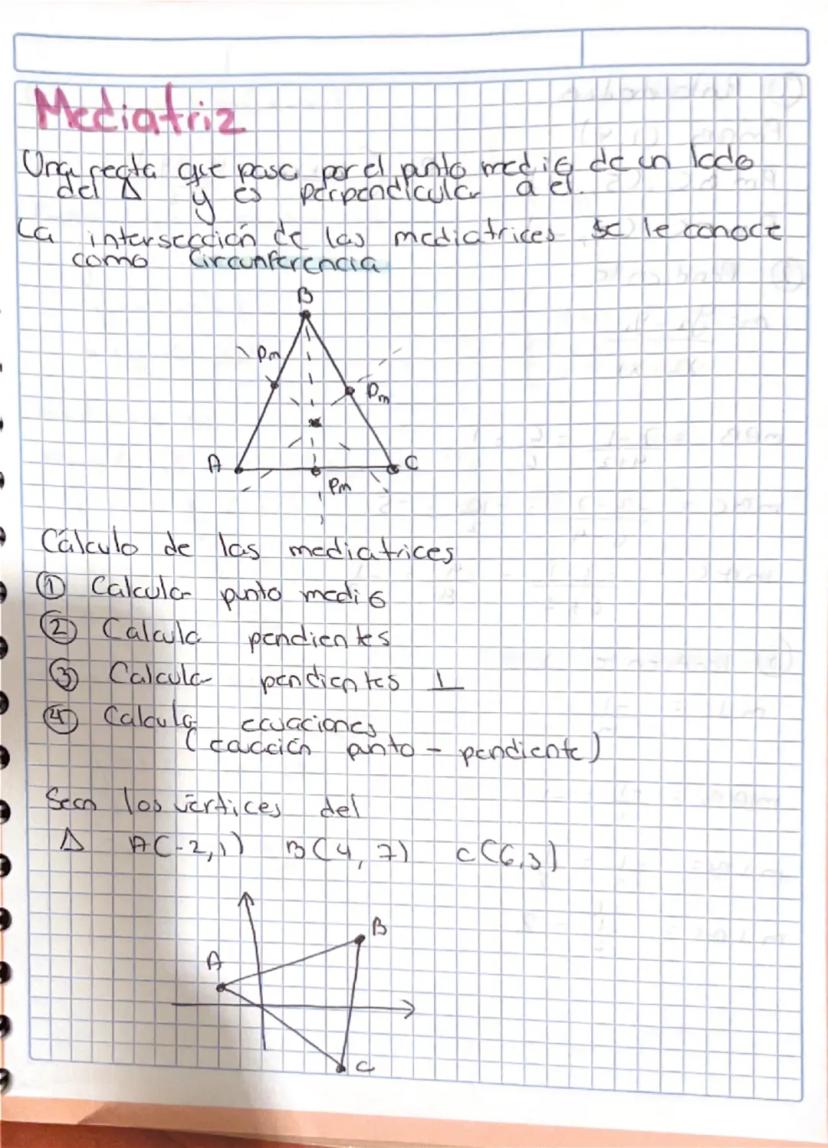 Mediatriz
Una recta que pasa por el punto medio de un lado
del Δ y es perpendicular a el.
La intersección de las mediatrices se le conoce
como Circunferencia
B
Pm
Pm
A
C
Pm
Cálculo de las mediatrices
① Calcular punto medio
② Calcula pendientes
③ Calcula pendientes ⊥
④ Calcula ecuaciones
(ecuación punto - pendiente)
Sean los vértices del
Δ A(-2,1) B(4, 7) C(6,3)
B
A
C